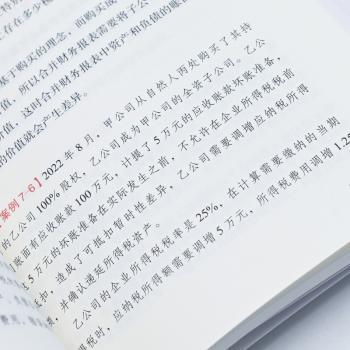 存在多少税
于购买的理念，而购买成
所以合并财务报表需要将子公
值，这时合并财务报表中资产和负债的账
的价值就会产生差异。
案例 7-6】2022 年 8 月，甲公司从自然人丙处购买了其持
的乙公司 100% 股权，乙公司成为甲公司的全资子公司。乙公
账面有应收账款 100 万元，计提了 5 万元的应收账款坏账准备，
5 万元的坏账准备在实际发生之前，不允许在企业所得税税前
扣，造成了可抵扣暂时性差异，乙公司需要调增应纳税所得
并确认递延所得税资产。
乙公司的企业所得税税率是 25%，在计算需要缴纳的当期
得税时，应纳税所得额需要调增 5 万元，所得税费用调增 1.25